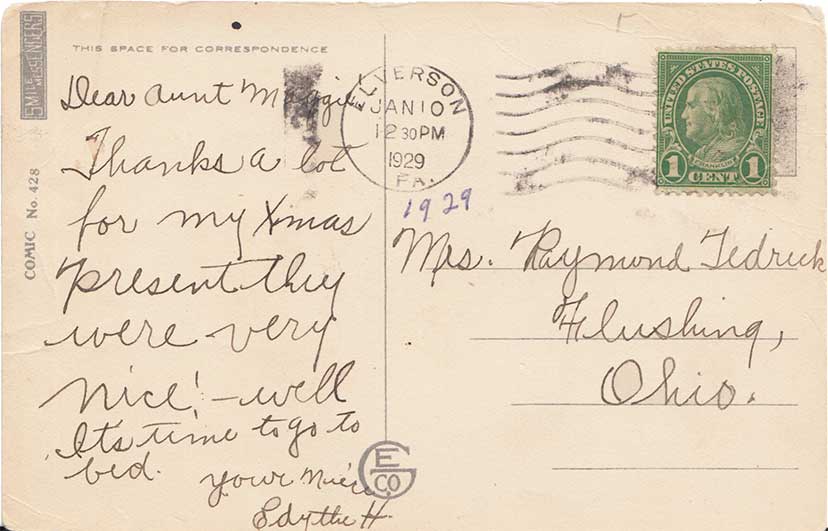 SMILE MESSENGERS
COMIC No. 428
THIS SPACE FOR CORRESPONDENCE
Dear Aunt Maggie
Thanks a lot
for my Xmas
present they
were very
nice! - well
It's time to go to
bed.
your niece
Edythe H.
ELVERSON
JAN 10
12 30 PM
1929
PA.
1929
UNITED STATES POSTAGE
FRANKLIN
1 CENT 1
Mrs. Raymond Tedrick
Flushing,
Ohio.
E
CO